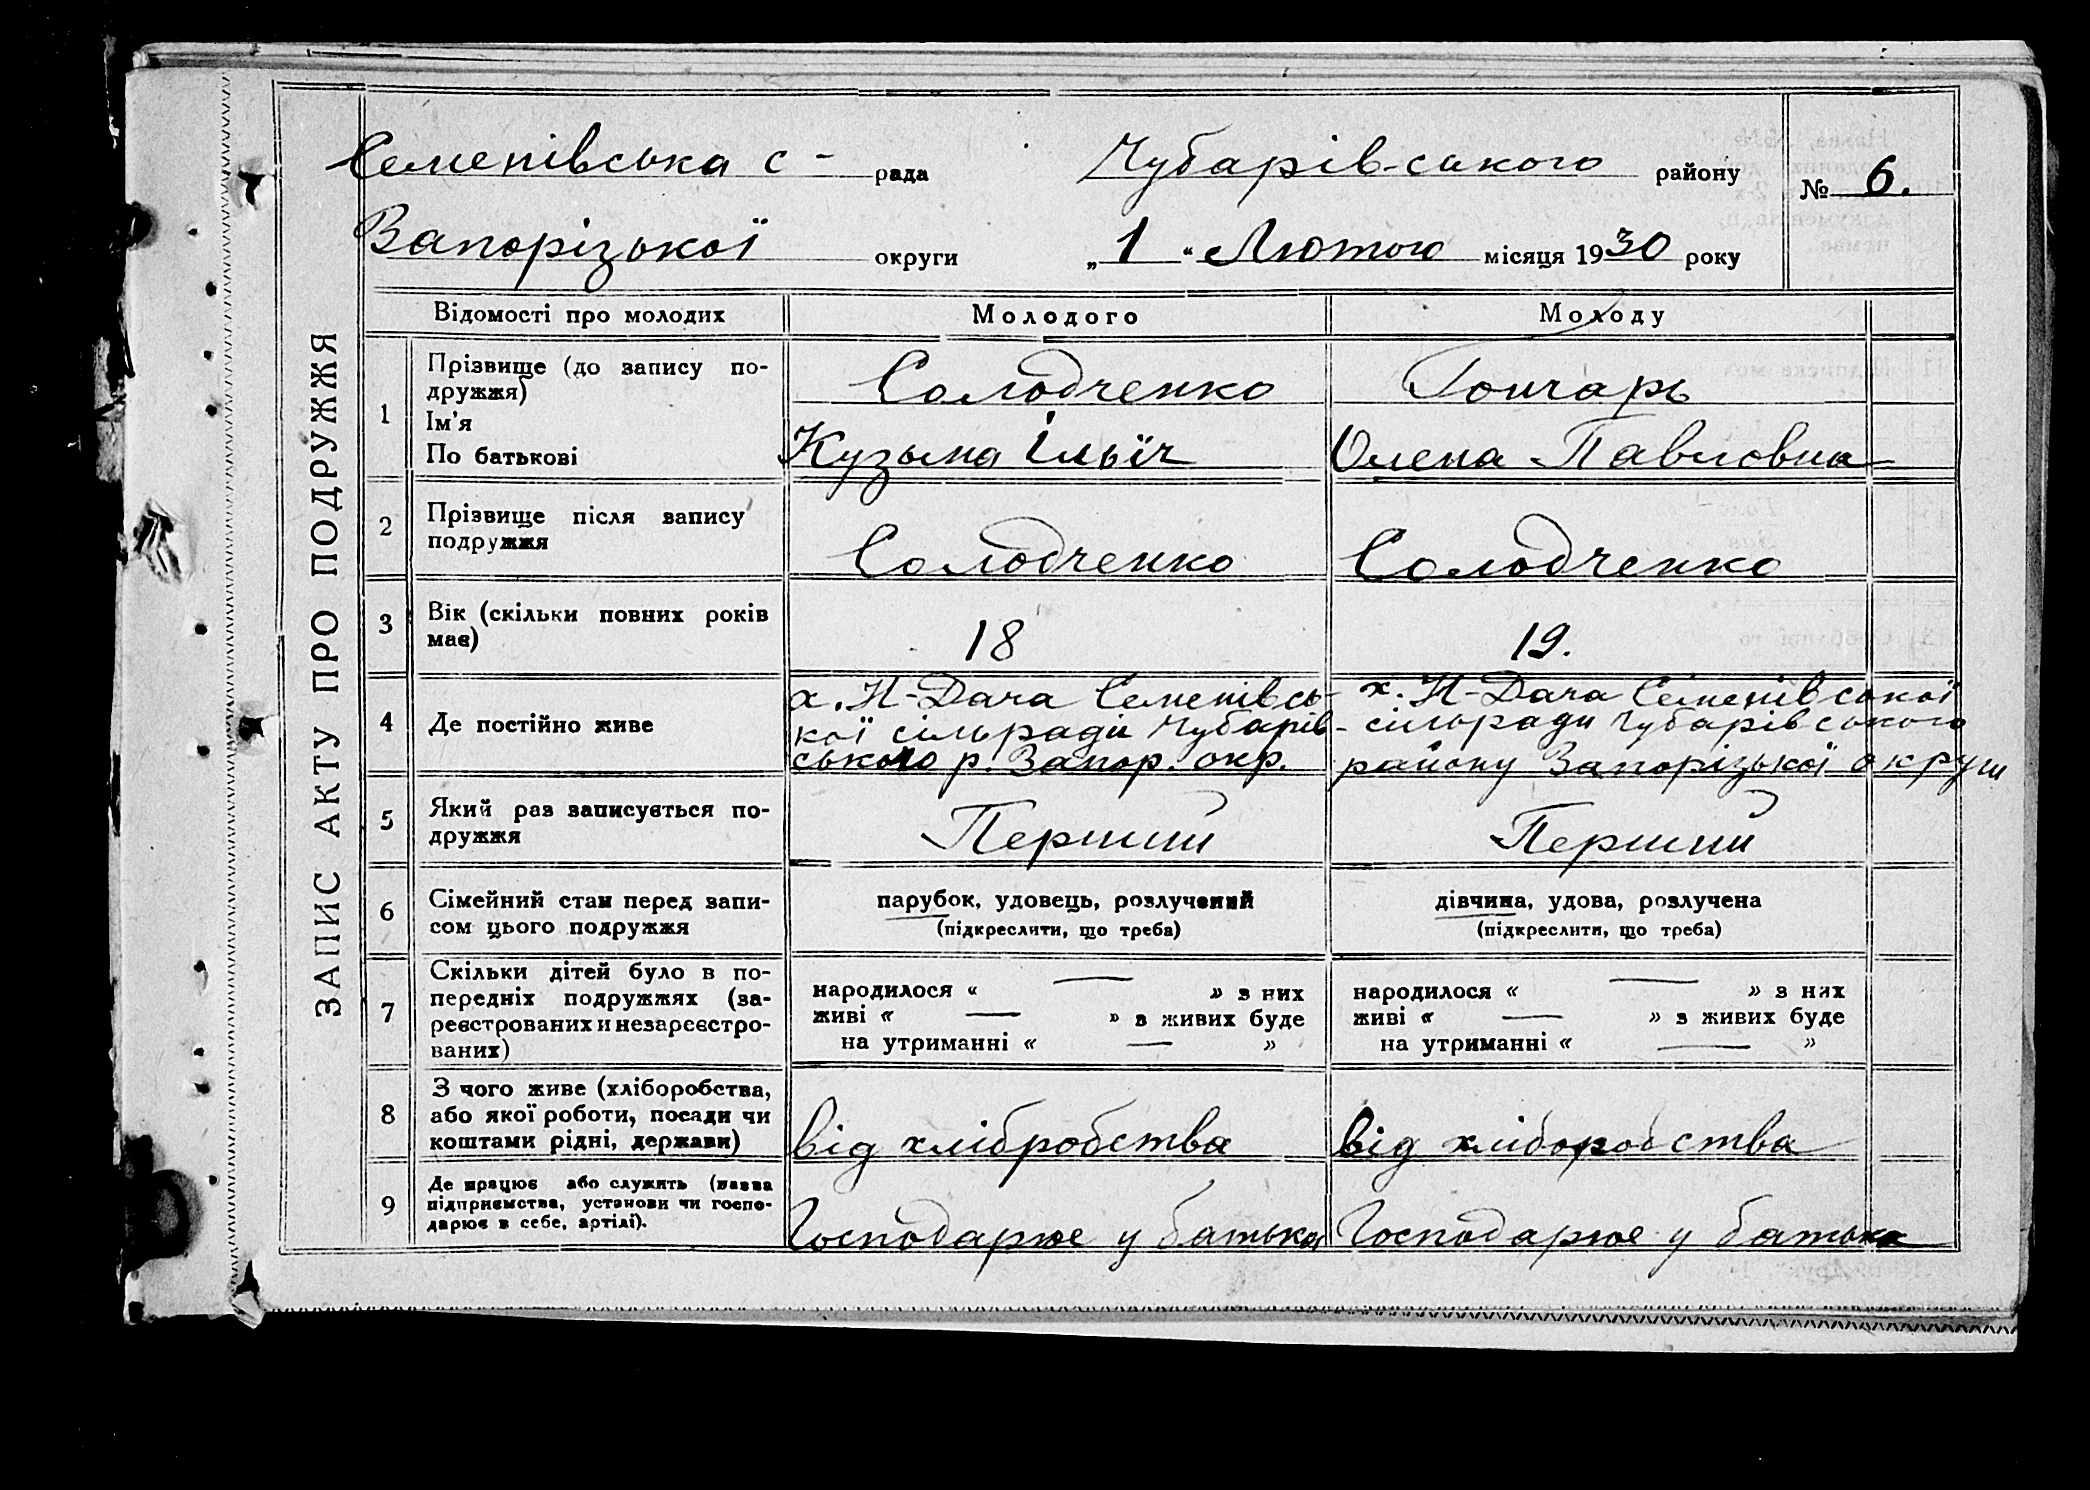 ЗАПИС АКТУ ПРО ПОДРУЖЖЯ
Семенівська с - рада Чубарів-ського району № 6.
Запорізької округи „1“ Лютого місяця 1930 року
Відомості про молодих Молодого Молоду
1 Прізвище (до запису по-
дружжя) Солодченко Гончарь
Ім'я
По батькові Кузьма Ільїч Олена Павловна
2 Прізвище після запису
подружжя Солодченко Солодченко
3 Вік (скільки повних років
має) 18 19.
4 Де постійно живе
х. Н-Дача Семенівсь-
кої сільради Чубарів-
ського р. Запор. окр.
х. Н-Дача Семенівської
сільради Чубарівського
району Запорізької округи
5 Який раз записується по-
дружжя Перший Перший
6 Сімейний стан перед запи-
сом цього подружжя
парубок, удовець, розлучений
(підкреслити, що треба)
дівчина, удова, розлучена
(підкреслити, що треба)
7 Скільки дітей було в по-
передніх подружжях (за-
реєстрованих и незареєстро-
ваних)
народилося « — » з них
живі « — » з живих буде
на утриманні « — »
народилося « — » з них
живі « — » з живих буде
на утриманні « — »
8 З чого живе (хліборобства,
або якої роботи, посади чи
коштами рідні, держави) від хлібробства від хліборобства
9 Де працює або служить (назва
підприємства, установи чи госпо-
дарює в себе, артілі). Господарює у батька Господарює у батька